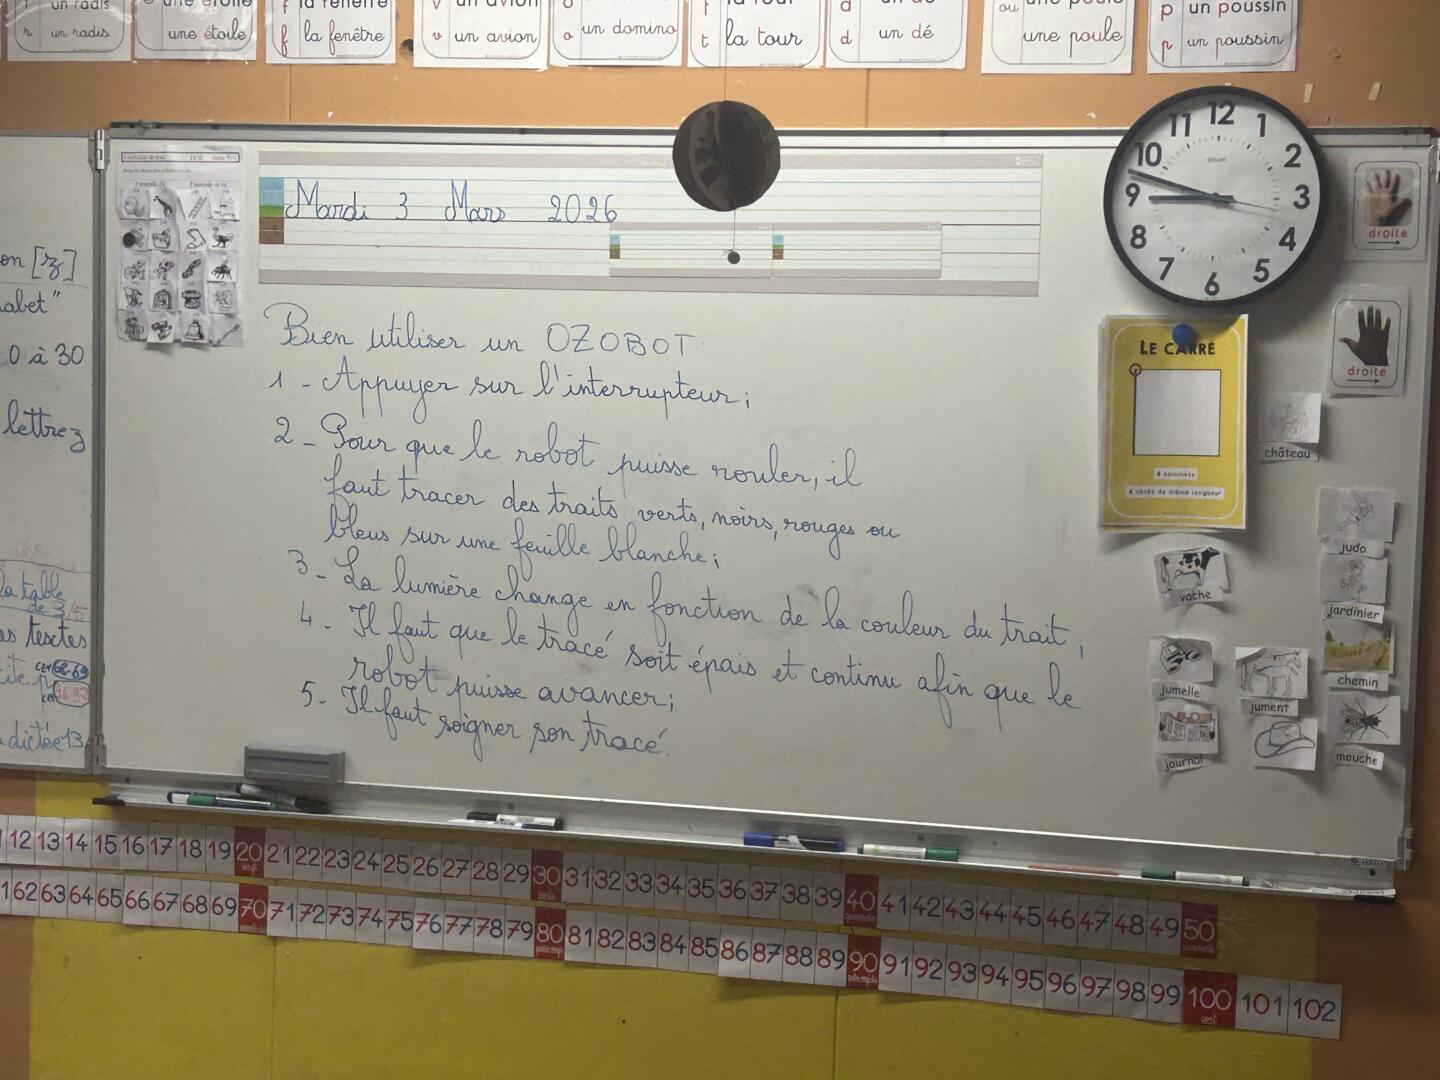 un radis
r un radis
une étoile
une étoile
f la fenêtre
f la fenêtre
v un avion
v un avion
o
o un domino
t la tour
t la tour
d un dé
d un dé
ou une poule
une poule
p un poussin
p un poussin
on [z]
abet"
0 à 30
lettrez
la table
de 3/5
textes
CE1 68-69
dictée 13
Mardi 3 Mars 2026
Bien utiliser un OZOBOT.
1 - Appuyer sur l'interrupteur;
2 - Pour que le robot puisse rouler, il
faut tracer des traits verts, noirs, rouges ou
bleus sur une feuille blanche;
3 - La lumière change en fonction de la couleur du trait;
4 - Il faut que le tracé soit épais et continu afin que le
robot puisse avancer;
5 - Il faut soigner son tracé.
12 1 2 3 4 5 6 7 8 9 10 11
droite
droite
LE CARRÉ
4 sommets
4 côtés de même longueur
château
judo
vache
jardinier
jumelle
jument
chemin
journal
mouche
12 13 14 15 16 17 18 19 20 21 22 23 24 25 26 27 28 29 30 31 32 33 34 35 36 37 38 39 40 41 42 43 44 45 46 47 48 49 50
62 63 64 65 66 67 68 69 70 71 72 73 74 75 76 77 78 79 80 81 82 83 84 85 86 87 88 89 90 91 92 93 94 95 96 97 98 99 100 101 102
cent